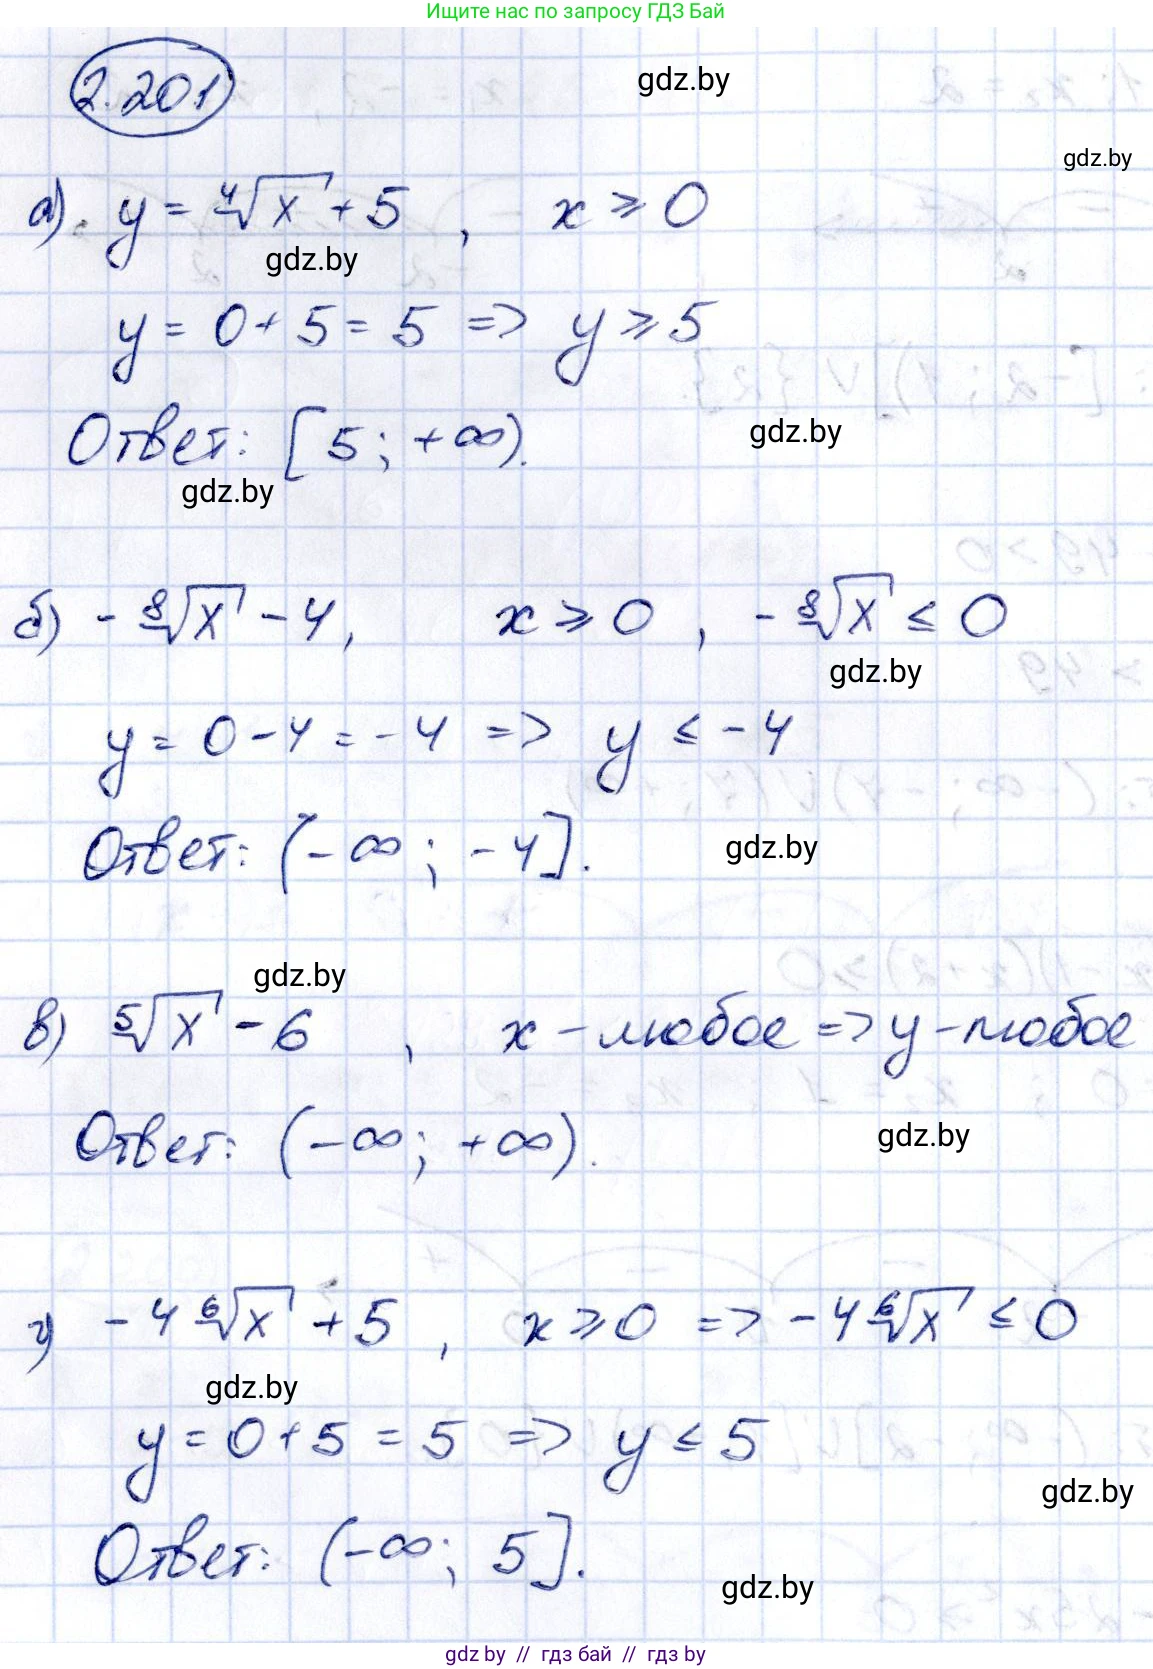 Ищите нас по запросу ГДЗ Бай
2.201
gdz.by
gdz.by
а) y = ⁴√x + 5, x ⩾ 0
gdz.by
y = 0 + 5 = 5 => y ⩾ 5
Ответ: [5; +∞).
gdz.by
gdz.by
б) - ⁸√x - 4, x ⩾ 0, - ⁸√x ≤ 0
gdz.by
y = 0 - 4 = -4 => y ≤ -4
Ответ: (-∞; -4].
gdz.by
gdz.by
в) ⁵√x - 6, x - любое => y - любое
Ответ: (-∞; +∞).
gdz.by
г) -4 ⁶√x + 5, x ⩾ 0 => -4 ⁶√x ≤ 0
gdz.by
y = 0 + 5 = 5 => y ≤ 5
gdz.by
Ответ: (-∞; 5].
gdz.by
gdz by // гдз бай // гдз by